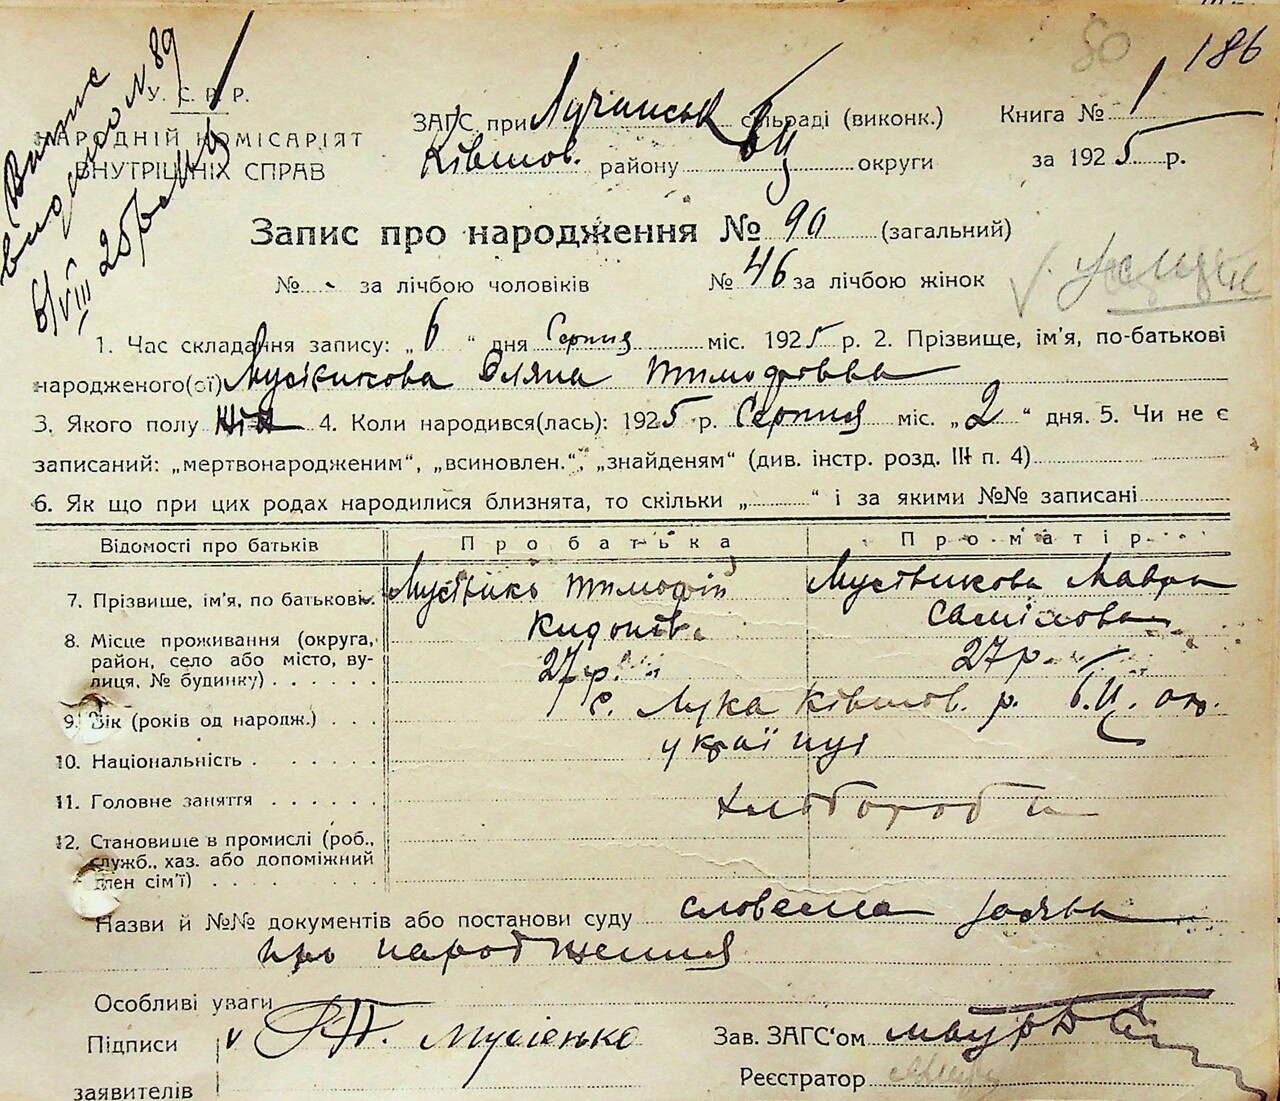 50
186
Випис
видано N 89
6/VIII 25р.
У. С. Р. Р.
НАРОДНІЙ КОМІСАРІЯТ
ВНУТРІШНІХ СПРАВ
ЗАГС при Лучанськ сільраді (виконк.)
Ківшов. району БЦ округи
Книга № 1
за 1925 р.
Запис про народження № 90 (загальний)
№ - за лічбою чоловіків № 46 за лічбою жінок
1. Час складання запису: „ 6 “ дня Серпня міс. 1925 р. 2. Прізвище, ім'я, по-батькові
народженого(ої) Оляна Тимофіевва
3. Якого полу 4. Коли народився(лась): 1925 р. Серпня міс. „ 2 “ дня. 5. Чи не є
записаний: „мертвонародженим“, „всиновлен.“, „знайденям“ (див. інстр. розд. III п. 4)
6. Як що при цих родах народилися близнята, то скільки „ “ і за якими №№ записані
Відомості про батьків Про батька Про матір
7. Прізвище, ім'я, по батькові. Тимофій Мавра
8. Місце проживання (округа,
район, село або місто, ву-
лиця, № будинку)
27 р. 27 р.
9. Вік (років од народж.) с. Лука Ківшов. р. Б.Ц. окр.
10. Національність українці
11. Головне заняття хлібороби
12. Становище в промислі (роб.,
служб., хаз. або допоміжний
член сім'ї)
Назви й №№ документів або постанови суду словесна заява
про народження
Особливі уваги
Підписи
заявителів
Мусіенко
Зав. ЗАГС'ом
Реєстратор